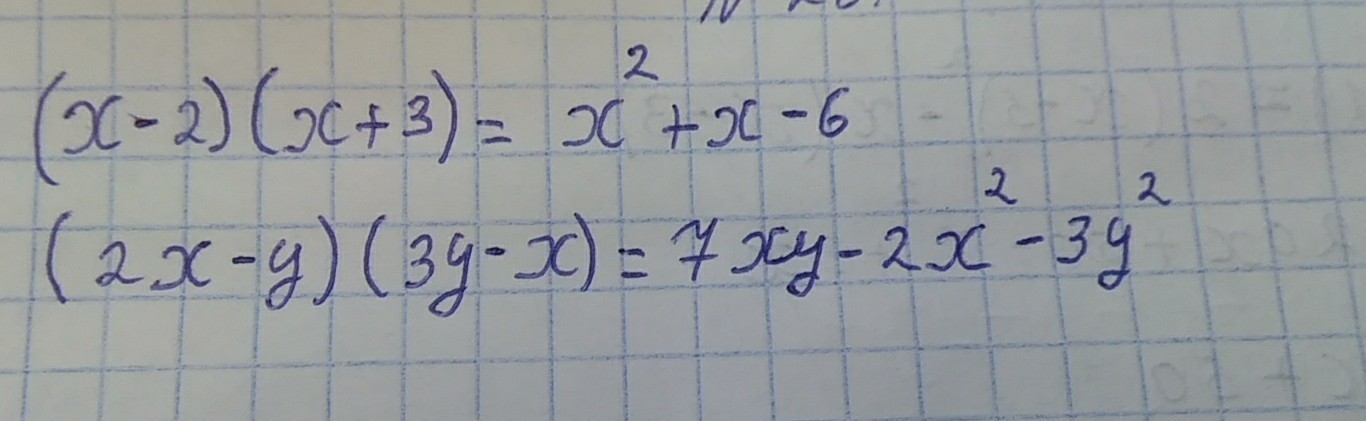 (x-2)(x+3)= x²+x-6
(2x-y)(3y-x)=7xy-2x²-3y²